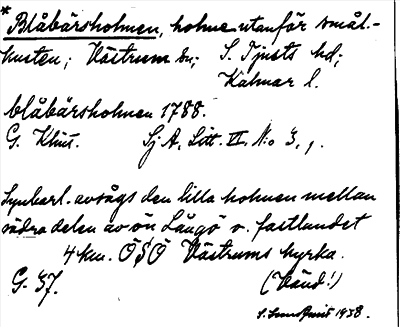 * Blåbärsholmen, holme utanför smål.-
kusten; Västrum sn; S. Tjusts hd;
Kalmar l.
blåbärsholmen 1788.
G. Klint. Sj A, Litt. VI. No 3, 1.
Synbarl. avsågs den lilla holmen mellan
södra delen av ön Långö o. fastlandet
4 km. OSO Västrums kyrka.
G. 37. (Vänd!)
S. Sundquist 1938.